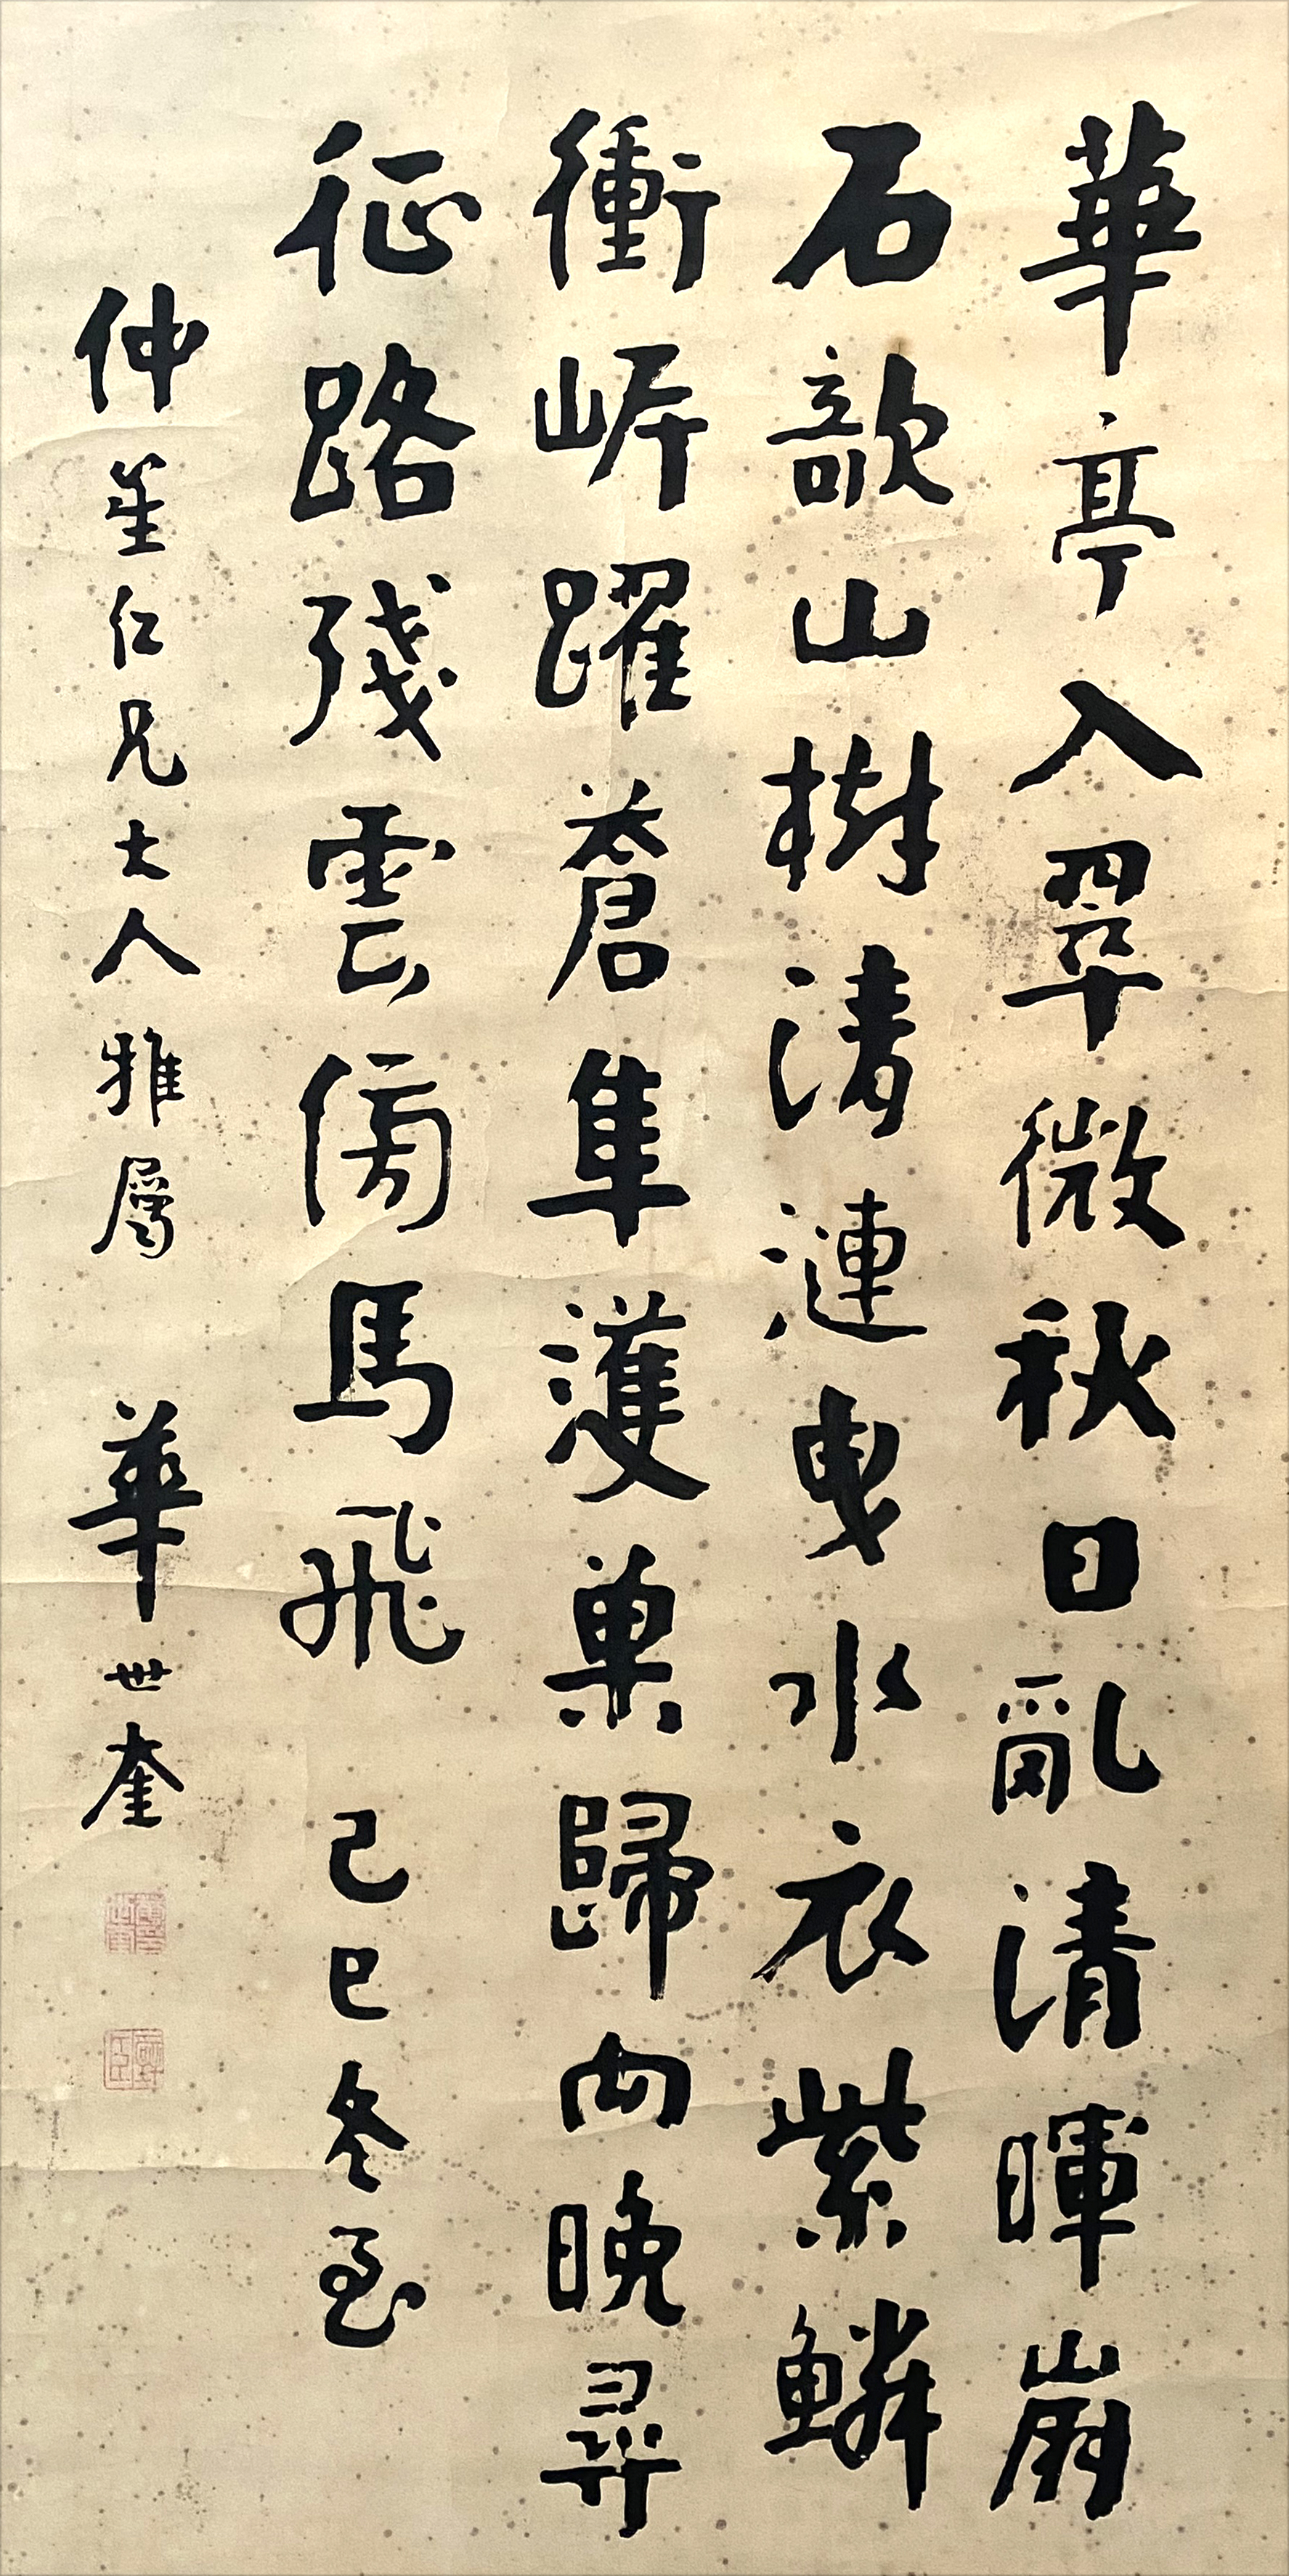 華亭入翠微秋日亂清暉崩
石欹山樹清漣曳水衣紫鱗
衝岸躍蒼隼濩巢歸向晚尋
征路殘雲傍馬飛 己巳冬至
仲笙仁兄大人雅屬 華世奎